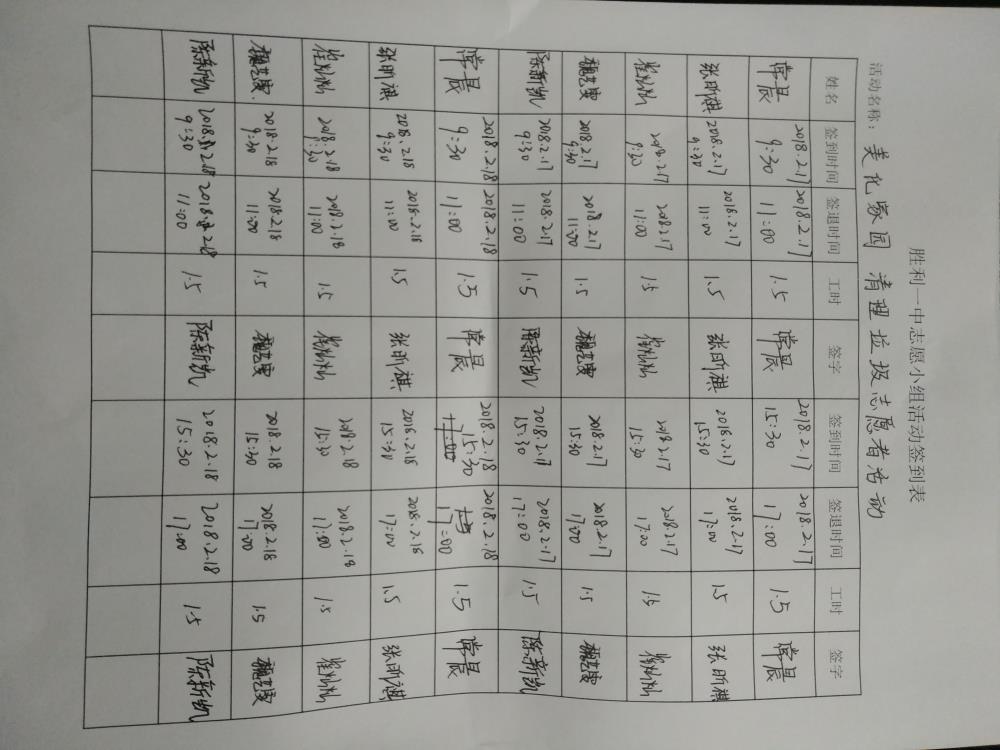 胜利一中志愿小组活动签到表
活动名称：美化家园 清理垃圾志愿者活动
姓名 签到时间 签退时间 工时 签字 签到时间 签退时间 工时 签字
常晨 2018.2.17 9:30 2018.2.17 11:00 1.5 常晨 2018.2.17 15:30 2018.2.17 17:00 1.5 常晨
张昕祺 2018.2.17 9:30 2018.2.17 11:00 1.5 张昕祺 2018.2.17 15:30 2018.2.17 17:00 1.5 张昕祺
2018.2.17 9:30 2018.2.17 11:00 1.5 2018.2.17 15:30 2018.2.17 17:00 1.5
2018.2.17 9:30 2018.2.17 11:00 1.5 2018.2.17 15:30 2018.2.17 17:00 1.5
陈新凯 2018.2.17 9:30 2018.2.17 11:00 1.5 陈新凯 2018.2.17 15:30 2018.2.17 17:00 1.5 陈新凯
常晨 2018.2.18 9:30 2018.2.18 11:00 1.5 常晨 2018.2.18 15:30 2018.2.18 17:00 1.5 常晨
张昕祺 2018.2.18 9:30 2018.2.18 11:00 1.5 张昕祺 2018.2.18 15:30 2018.2.18 17:00 1.5 张昕祺
2018.2.18 9:30 2018.2.18 11:00 1.5 2018.2.18 15:30 2018.2.18 17:00 1.5
2018.2.18 9:30 2018.2.18 11:00 1.5 2018.2.18 15:30 2018.2.18 17:00 1.5
陈新凯 2018.2.18 9:30 2018.2.18 11:00 1.5 陈新凯 2018.2.18 15:30 2018.2.18 17:00 1.5 陈新凯